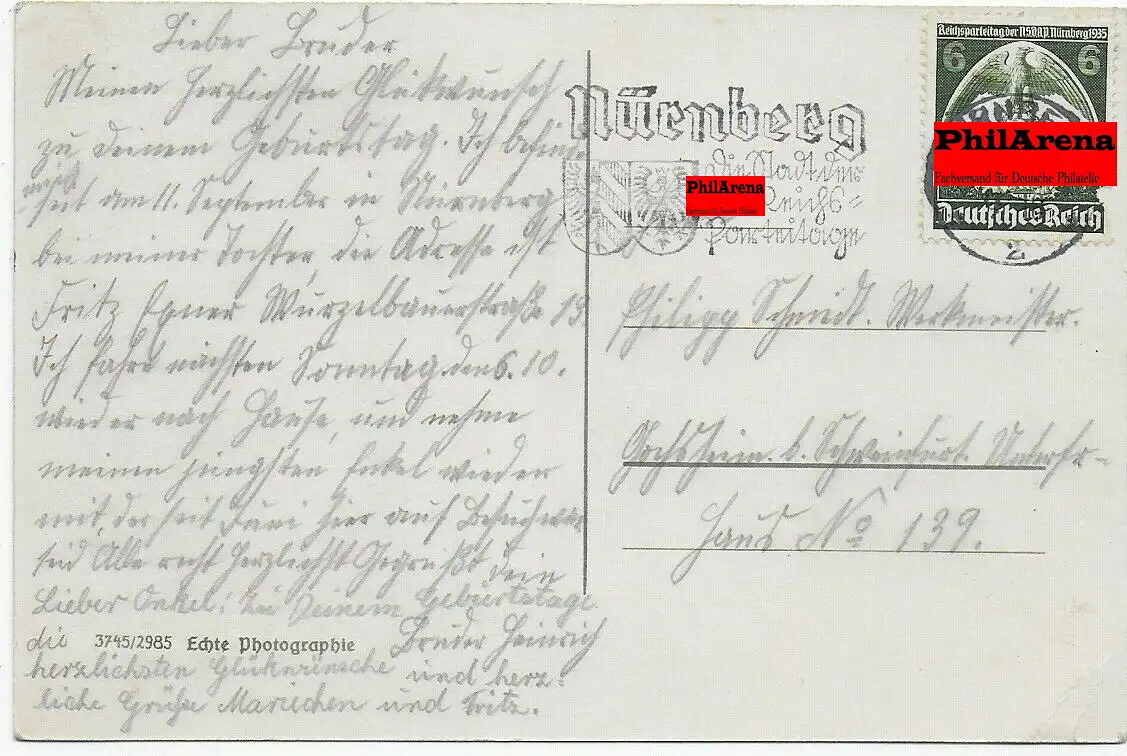 Lieber Bruder
Meinen herzlichsten Glükwunsch
zu deinem Geburtstag. Ich befinde
mich
seit am 11. September in Nürnberg
bei meiner Tochter, die Adresse ist
Fritz Wurzelbauerstraße 19
Ich fahre nächsten Sonntag den 6. 10.
wieder nach Hause, und nehme
meinen jüngsten Enkel wieder
mit, der seit Juni hier auf Besuch war
seid Alle recht herzlichst Gegrüßt dein
Bruder Heinrich
Lieber Onkel! Zu Deinem Geburtstage
die
herzlichsten Glükwünsche und herz=
liche Grüße Mariechen und Fritz.
3745/2985 Echte Photographie
Nürnberg
die Stadt der
Reichs=
parteitage
PhilArena
Reichsparteitag der N.S.D.A.P. Nürnberg 1935
6 6
PhilArena
Fachversand für Deutsche Philatelie
Deutsches Reich
2
Philipp Schmidt. Werkmeister.
Gochsheim b. Schweinfurt. Unterfr-
Haus No 139.